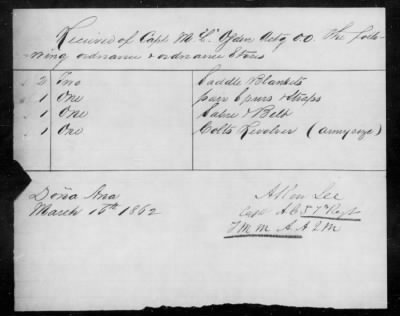 Received of Capt M. L. Ogden Actg O.O. The follo-
wing ordnance & ordnance Stores
2 Two Saddle Blankets
1 One pair Spurs & Straps
1 One Sabre & Belt
1 One Colts Revolver (army size)
Doña Ana
March 16th 1862
Allen Lee
Capt A 5th Regt
T M M A A Q M